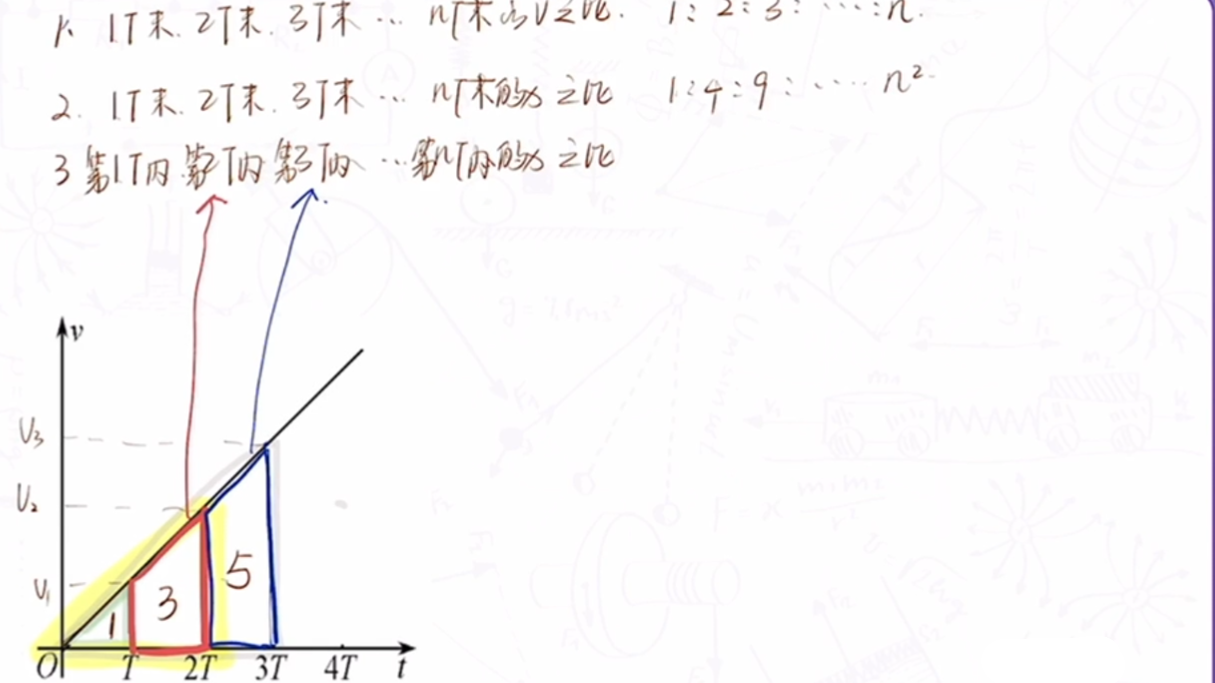 1. 1T末. 2T末. 3T末 … nT末的v之比. 1:2:3:……:n.
2. 1T末. 2T末. 3T末 … nT末的x之比 1:4:9:…… n²
3 第1T内 第2T内 第3T内 …第nT内的x之比
v
V₃
V₂
V₁
1 3 5
O T 2T 3T 4T t